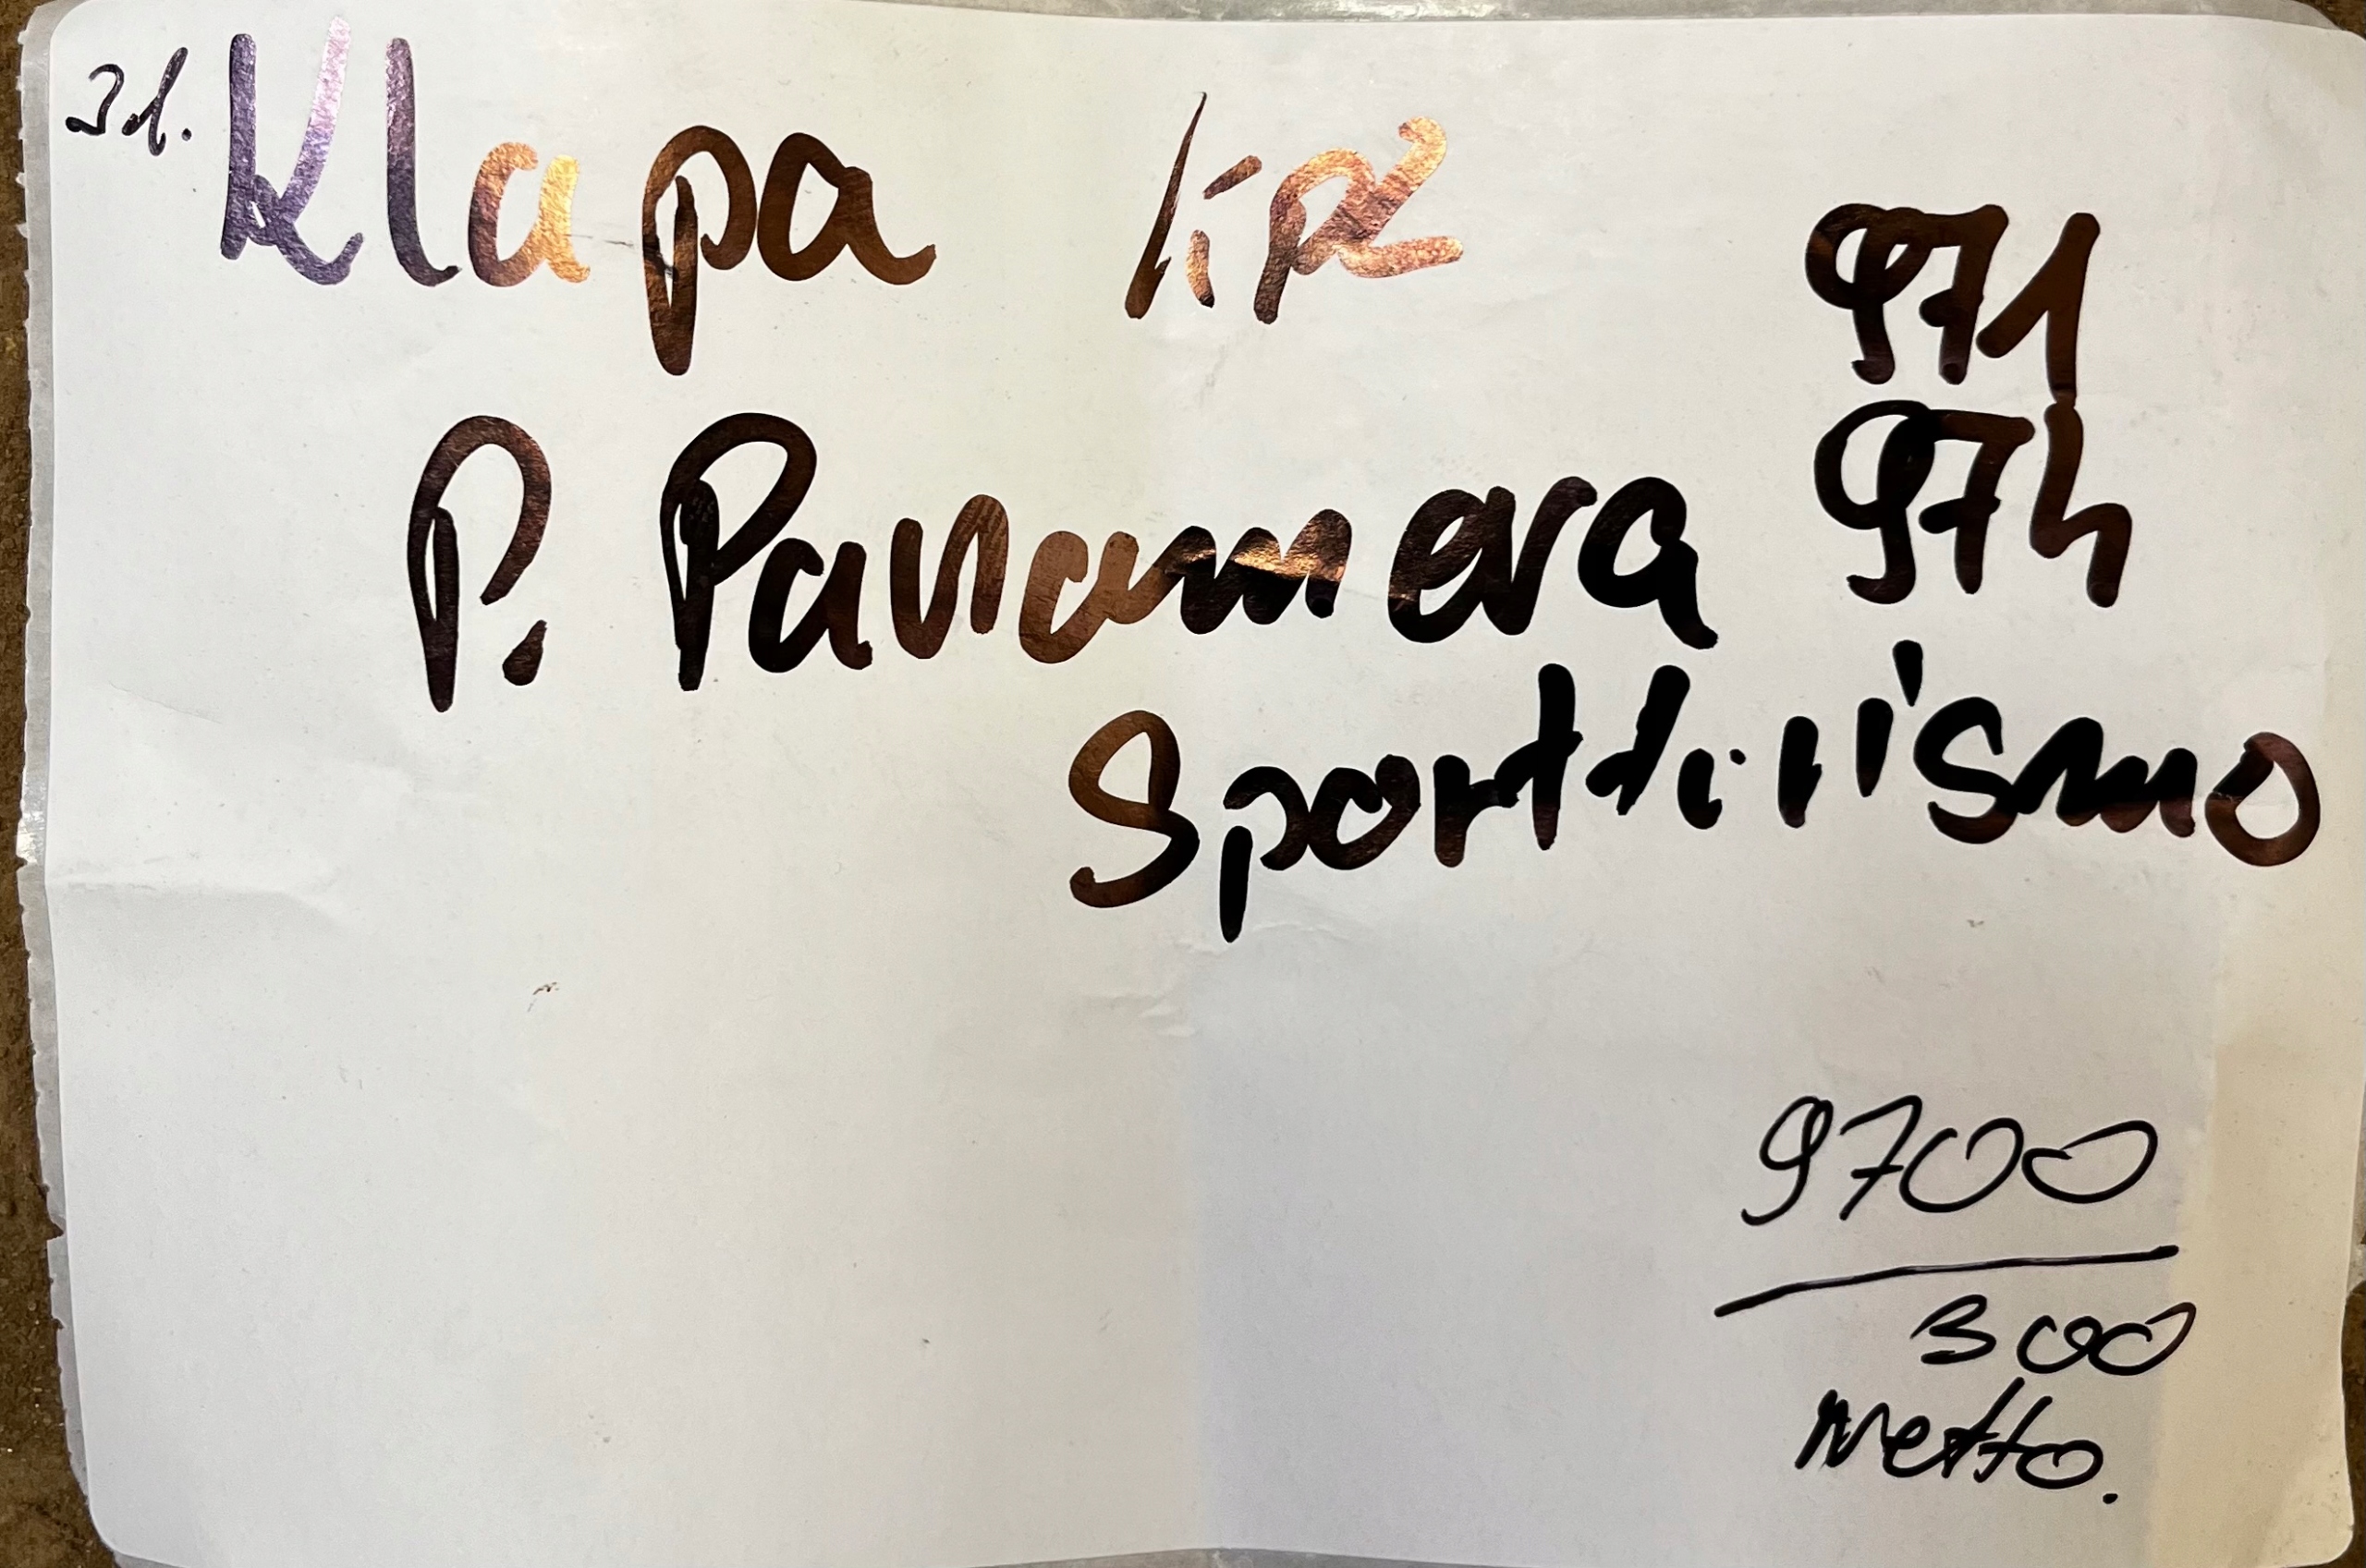 Klapa kpl 971
P. Panamera 974
Sportturismo
9700
300
netto.